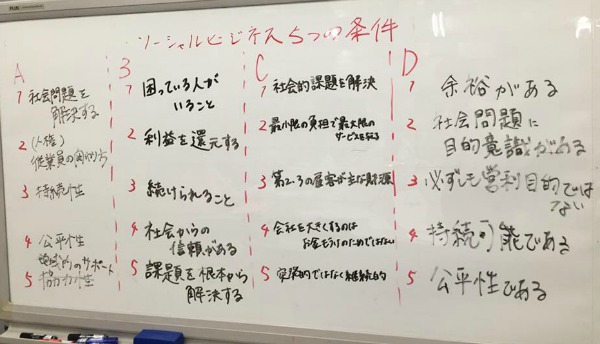 ソーシャルビジネス5つの条件
A
1 社会問題を
解決する
2 (人権)
従業員の
3 持続性
4 公平性
地域的のサポート
5 協力性
B
1 困っている人が
いること
2 利益を還元する
3 続けられること
4 社会からの
信頼がある
5 課題を根本から
解決する
C
1 社会的課題を解決
2 最小限の負担で最大限の
サービスを
3 第2、3の顧客が主な財源
4 会社を大きくするのは
お金もうけのためではない
5 ではなく継続的
D
1 余裕がある
2 社会問題に
目的意識がある
3 必ずしも営利目的では
ない
4 持続可能である
5 公平性である